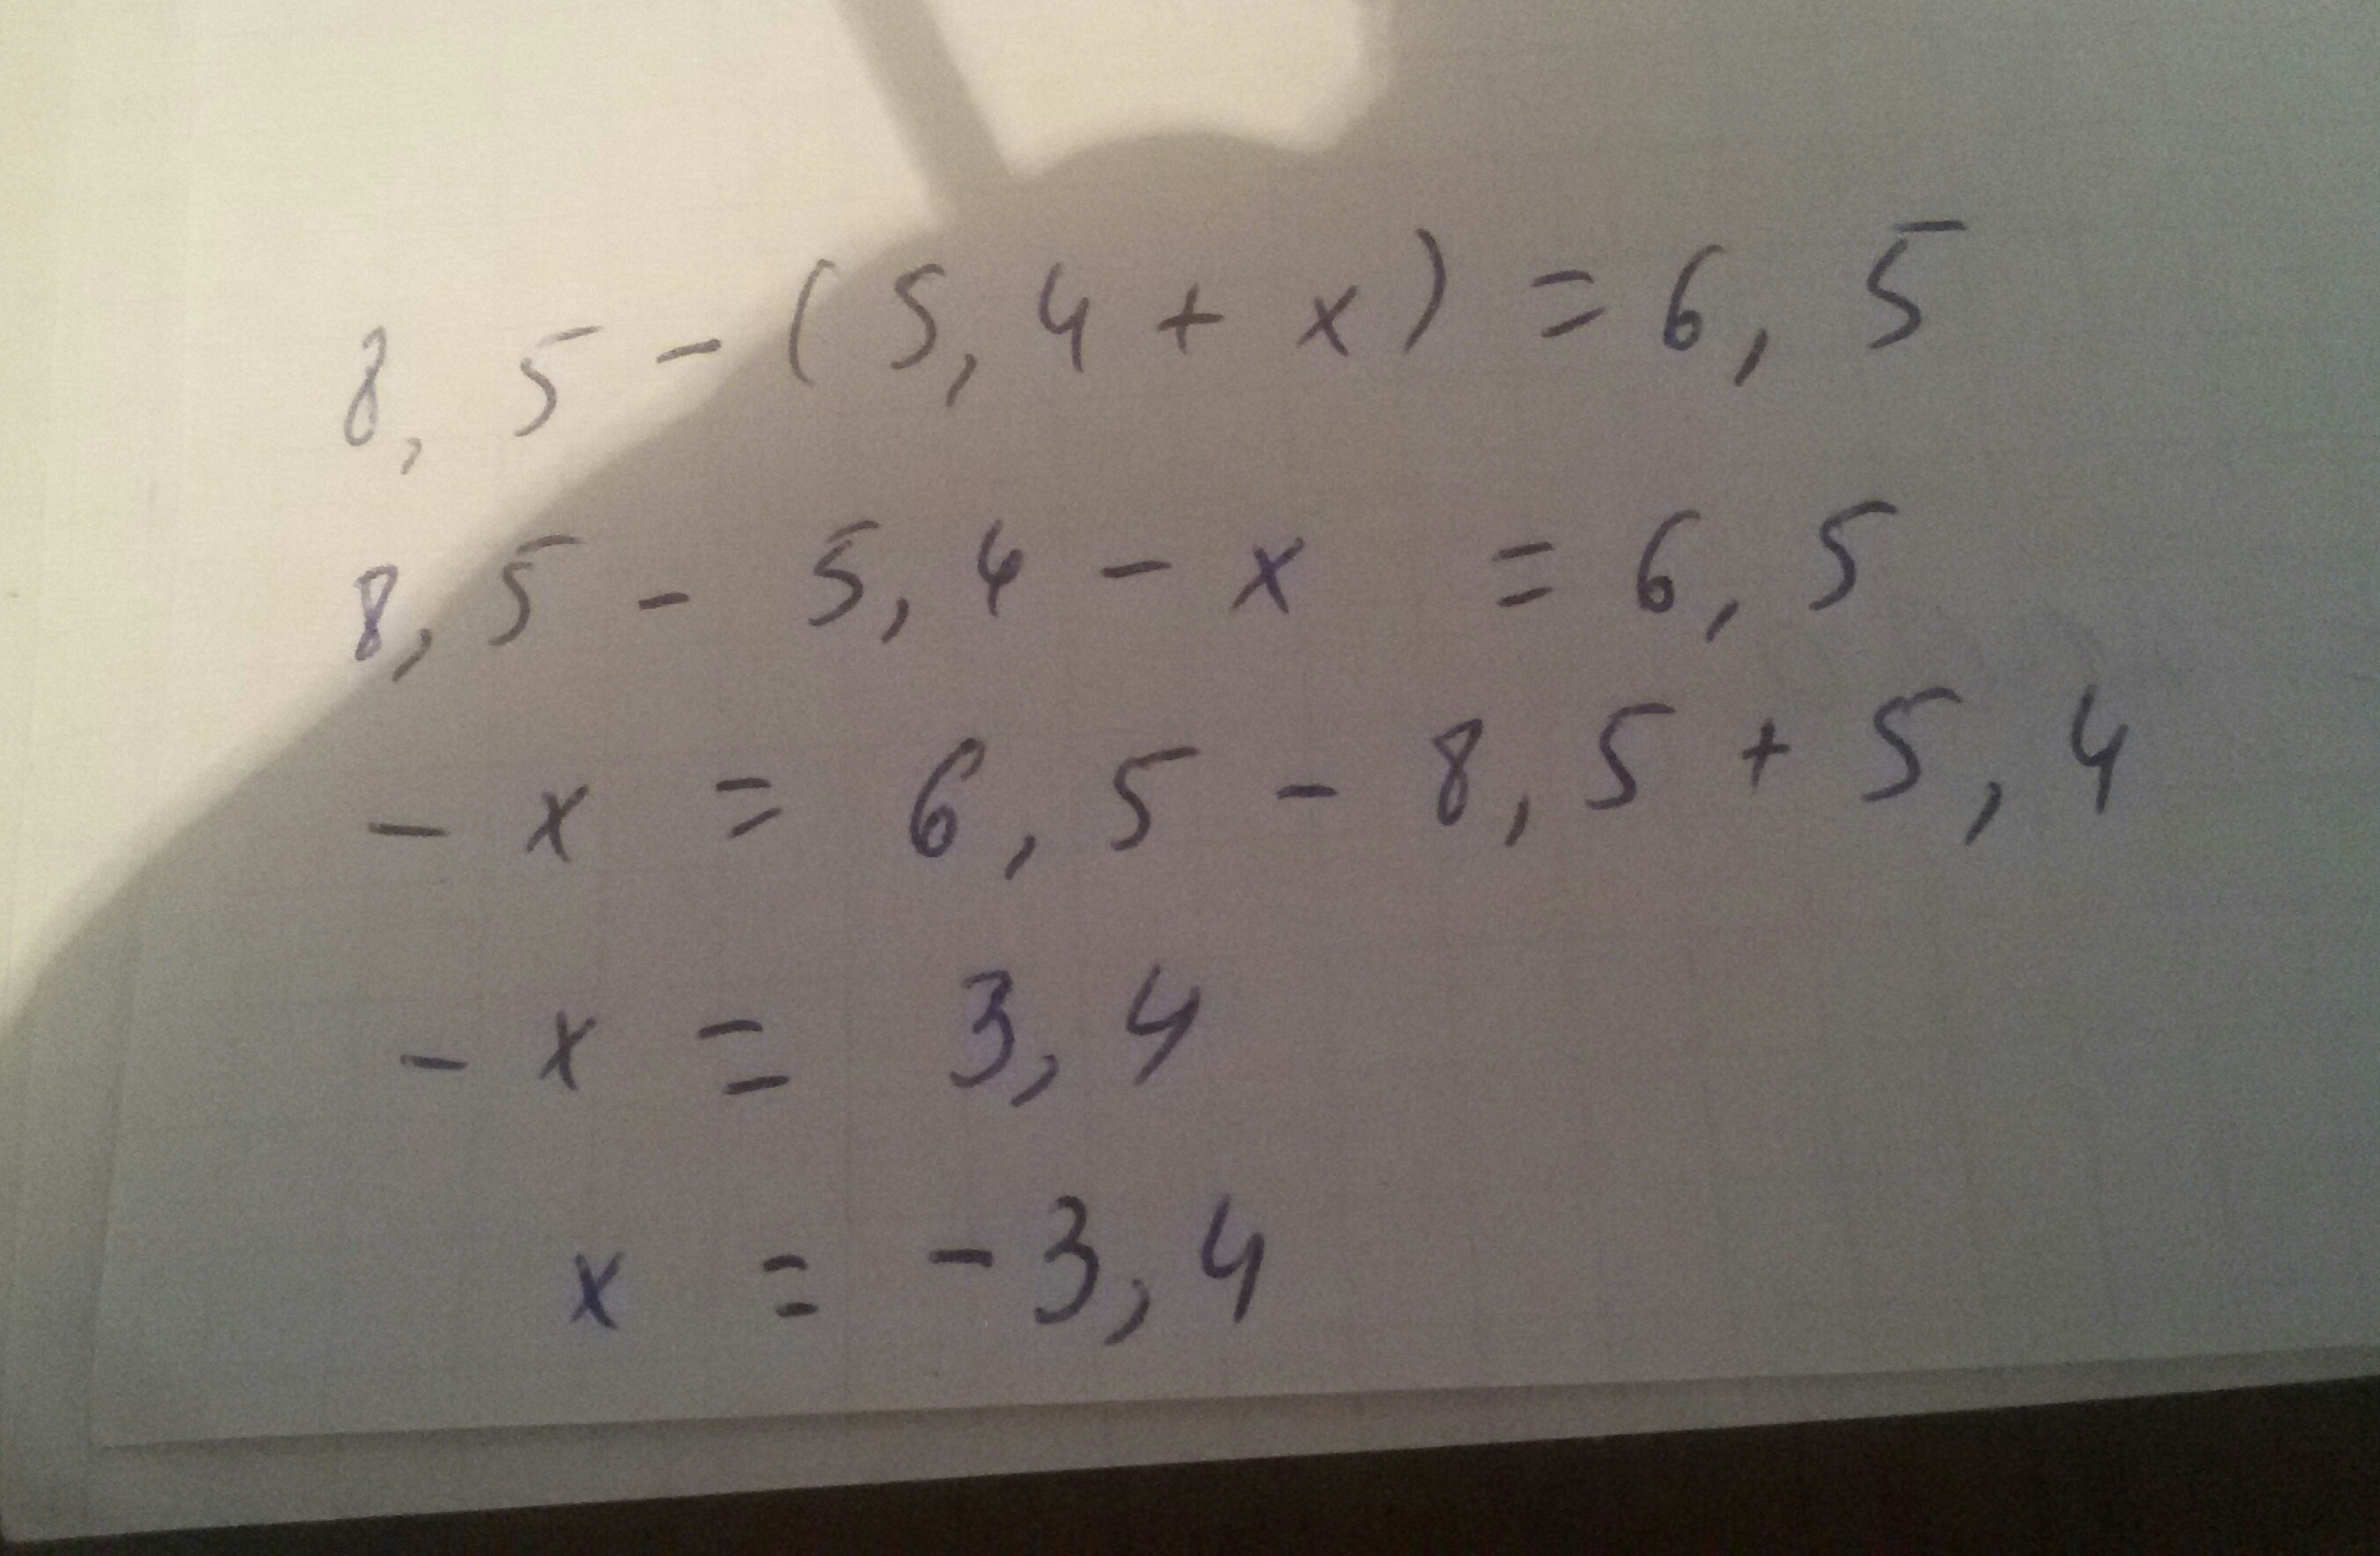 8,5 - (5,4 + x) = 6,5
8,5 - 5,4 - x = 6,5
- x = 6,5 - 8,5 + 5,4
- x = 3,4
x = -3,4